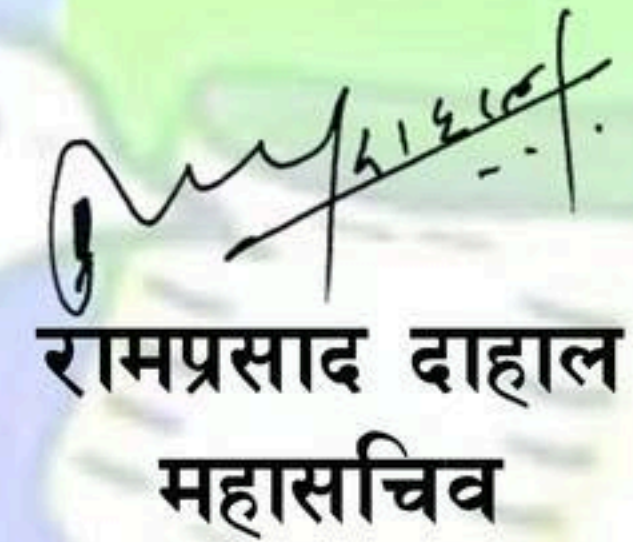 दाहाल
रामप्रसाद दाहाल
महासचिव